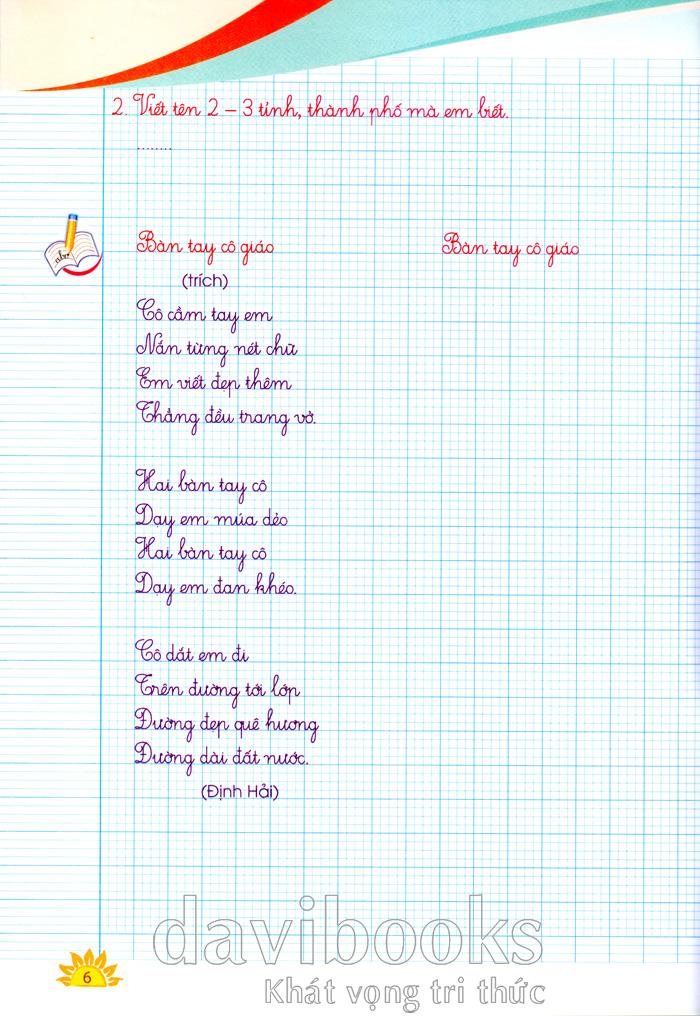 2. Viết tên 2 – 3 tỉnh, thành phố mà em biết.
........
Bàn tay cô giáo
(trích)
Cô cầm tay em
Nắn từng nét chữ
Em viết đẹp thêm
Thẳng đều trang vở.
Hai bàn tay cô
Dạy em múa dẻo
Hai bàn tay cô
Dạy em đan khéo.
Cô dắt em đi
Trên đường tới lớp
Đường đẹp quê hương
Đường dài đất nước.
(Định Hải)
Bàn tay cô giáo
abc
davibooks
Khát vọng tri thức
6